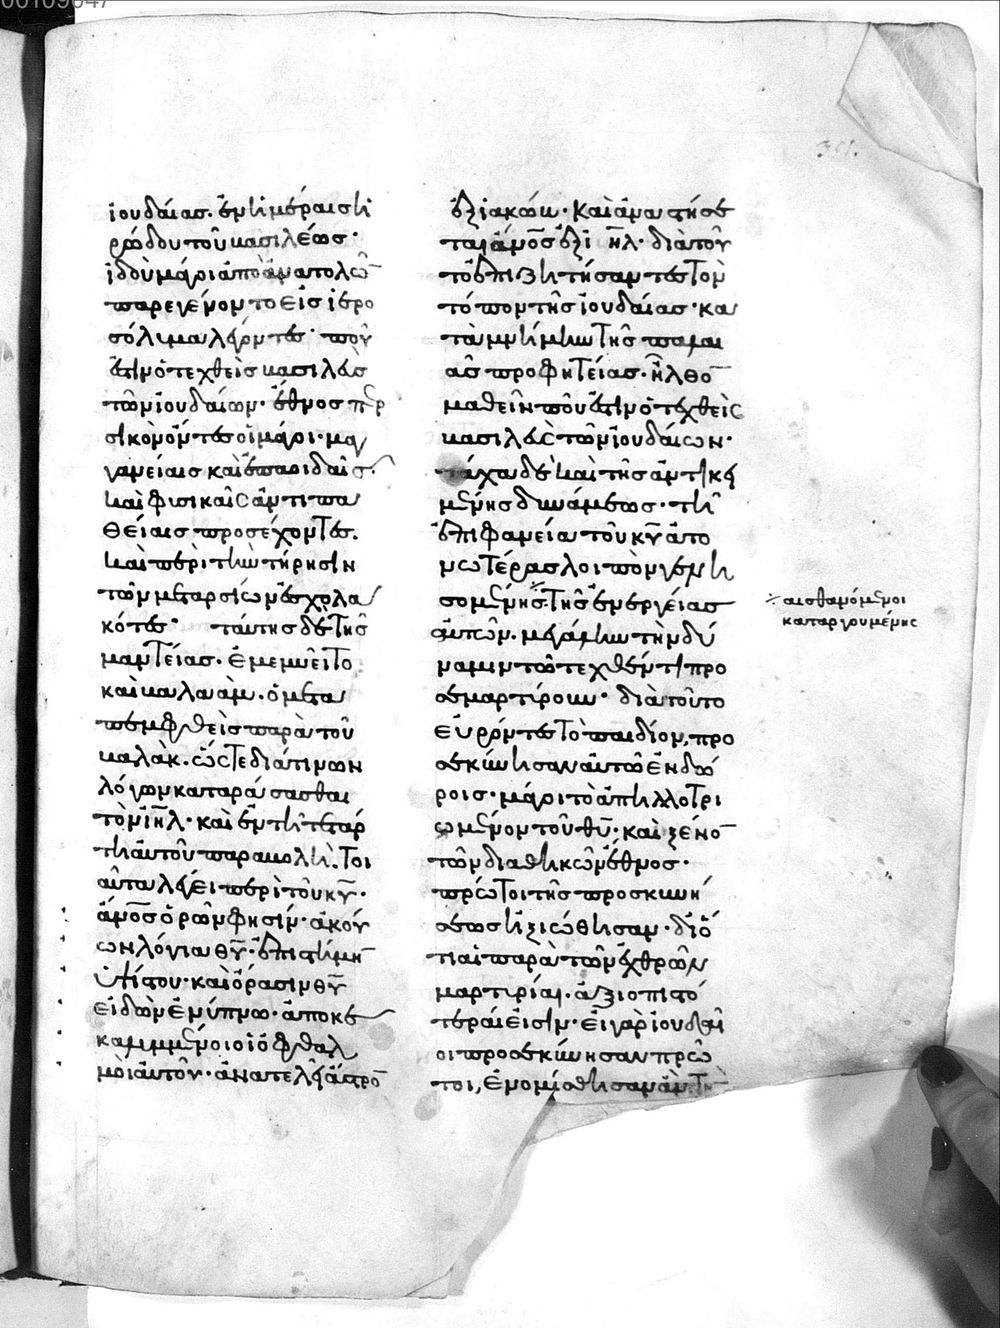 ἰουδαίας· ἐν ἡμέραις ἡ
ρώδου τοῦ βασιλέως·
ἰδοὺ μάγοι ἀπὸ ἀνατολῶ
παρεγένοντο εἰς ἱερο
σόλυμα λέγοντες· ποῦ
ἐστιν ὁ τεχθεὶς βασιλεὺς
τῶν ἰουδαίων· ἔθνος περ
σικὸν ὄντες οἱ μάγοι· μαγ
γανείαις καὶ ἐπαοιδαῖς·
καὶ φυσικαῖς ἀντιπα
θείαις προσέχοντες.
καὶ περὶ τὴν τήρησιν
τῶν μεταρσίων ἐσχολα
κότες· ταύτης δὲ τῆς
μαντείας· ἐμέμνητο
καὶ βαλαάμ· ὁ μετα
πεμφθεὶς παρὰ τοῦ
βαλάκ· ὥστε διά τινων
λόγων καταράσασθαι
τὸν ἰηλ· καὶ ἐν τῆ τετάρ
τη αὐτοῦ παραβολῆ· τοι
αῦτα λέγει περὶ τοῦ κυ·
ἄνος ὁ ὁρῶν φησίν· ἀκού
ων λόγια θυ· ἐπιστήμη
ὑψίστου· καὶ ὅρασιν θυ
εἰδὼν ἐν ὕπνω· ἀποκε
καλυμμένοι οἱ ὀφθαλ
μοὶ αὐτοῦ· ἀνατελεῖ ἄστρο
ἐξ ἰακώβ· καὶ ἀναστήσε
ται ἄνος ἐξ ιηλ· διὰ τοῦ
το ἐπιζητήσαντες τὸν
τόπον τῆς ἰουδαίας· κα
τὰ μνήμην τῆς παλαι
ᾶς προφητείας· ἦλθο
μαθεῖν ποῦ ἐστιν ὁ τεχθεὶς
βασιλεὺς τῶν ἰουδαίων·
τάχα δὲ καὶ τῆς ἀντικει
μένης δυνάμεως· τῆ
ἐπιφανεία τοῦ κυ ἀτο
νωτέρας λοιπὸν γενη
σομένης· τῆς ἐνεργείας
αὐτῶν· μεγάλην τὴν δύ
ναμιν τῶ τεχθέντι προ
σμαρτυροῦν· διὰ τοῦτο
εὑρόντες τὸ παιδίον, προ
σκύνησαν αὐτῶ ἐν δώ
ροις· μάγοι τὸ ἀπηλλοτρι
ωμένον τοῦ θυ· καὶ ξένο
τῶν διαθηκῶν ἔθνος·
πρῶτοι τῆς προσκυνή
σεως ἠξιώθησαν· διό
τι αἱ παρὰ τῶν ἐχθρῶν
μαρτυρίαι· ἀξιοπιστό
τεραι εἰσίν· εἰ γὰρ ἰουδαῖ
οι προσκύνησαν πρῶ
τοι, ἐνομίσθησαν ἂν τὴ
⁒ αἰσθανόμενοι
καταργουμένης